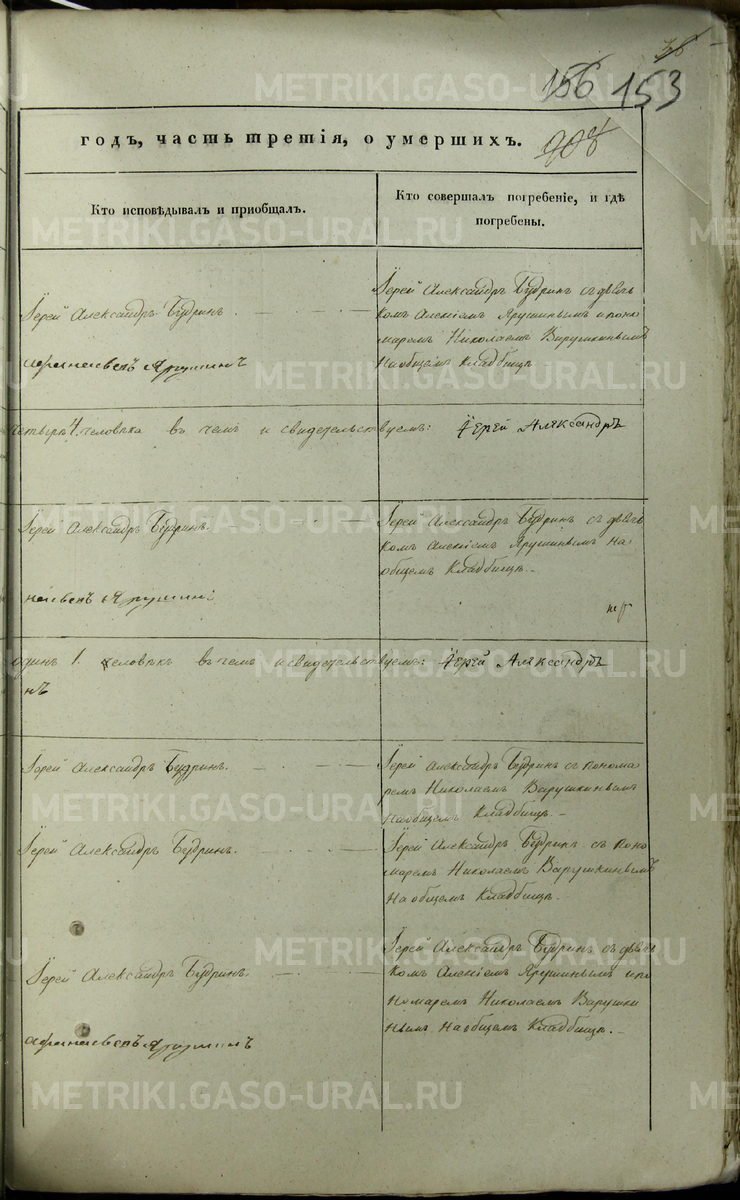 156 153
годъ, часть третія, о умершихъ.
Кто исповѣдывалъ и приобщалъ.
Кто совершалъ погребеніе, и гдѣ
погребены.
Іерей Александръ Будринъ.
Іерей Александръ Будринъ съ дьяч
комъ Алексіемъ Ярушинымъ и поно
маремъ Николаемъ Варушкинымъ
На общемъ кладбищѣ
Ярушинъ
четыре 4. человѣка въ чемъ и свидетельствуемъ: Іерей Александръ
Іерей Александръ Будринъ.
Іерей Александръ Будринъ съ дьяч
комъ Алексіемъ Ярушинымъ на
общемъ Кладбищѣ.
Ярушинъ
одинъ 1. человѣкъ въ чемъ и свидетельствуемъ: Іерей Александръ
нъ
Іерей Александръ Будринъ.
Іерей Александръ Будринъ съ понома
ремъ Николаемъ Варушкинымъ
На общемъ Кладбищѣ.
Іерей Александръ Будринъ.
Іерей Александръ Будринъ съ поно
маремъ Николаемъ Варушкинымъ
На общемъ Кладбищѣ.
Іерей Александръ Будринъ.
Іерей Александръ Будринъ съ дьяч
комъ Алексіемъ Ярушинымъ и по
номаремъ Николаемъ Варушки
нымъ На общемъ Кладбищѣ.
Ярушинъ
METRIKI.GASO-URAL.RU